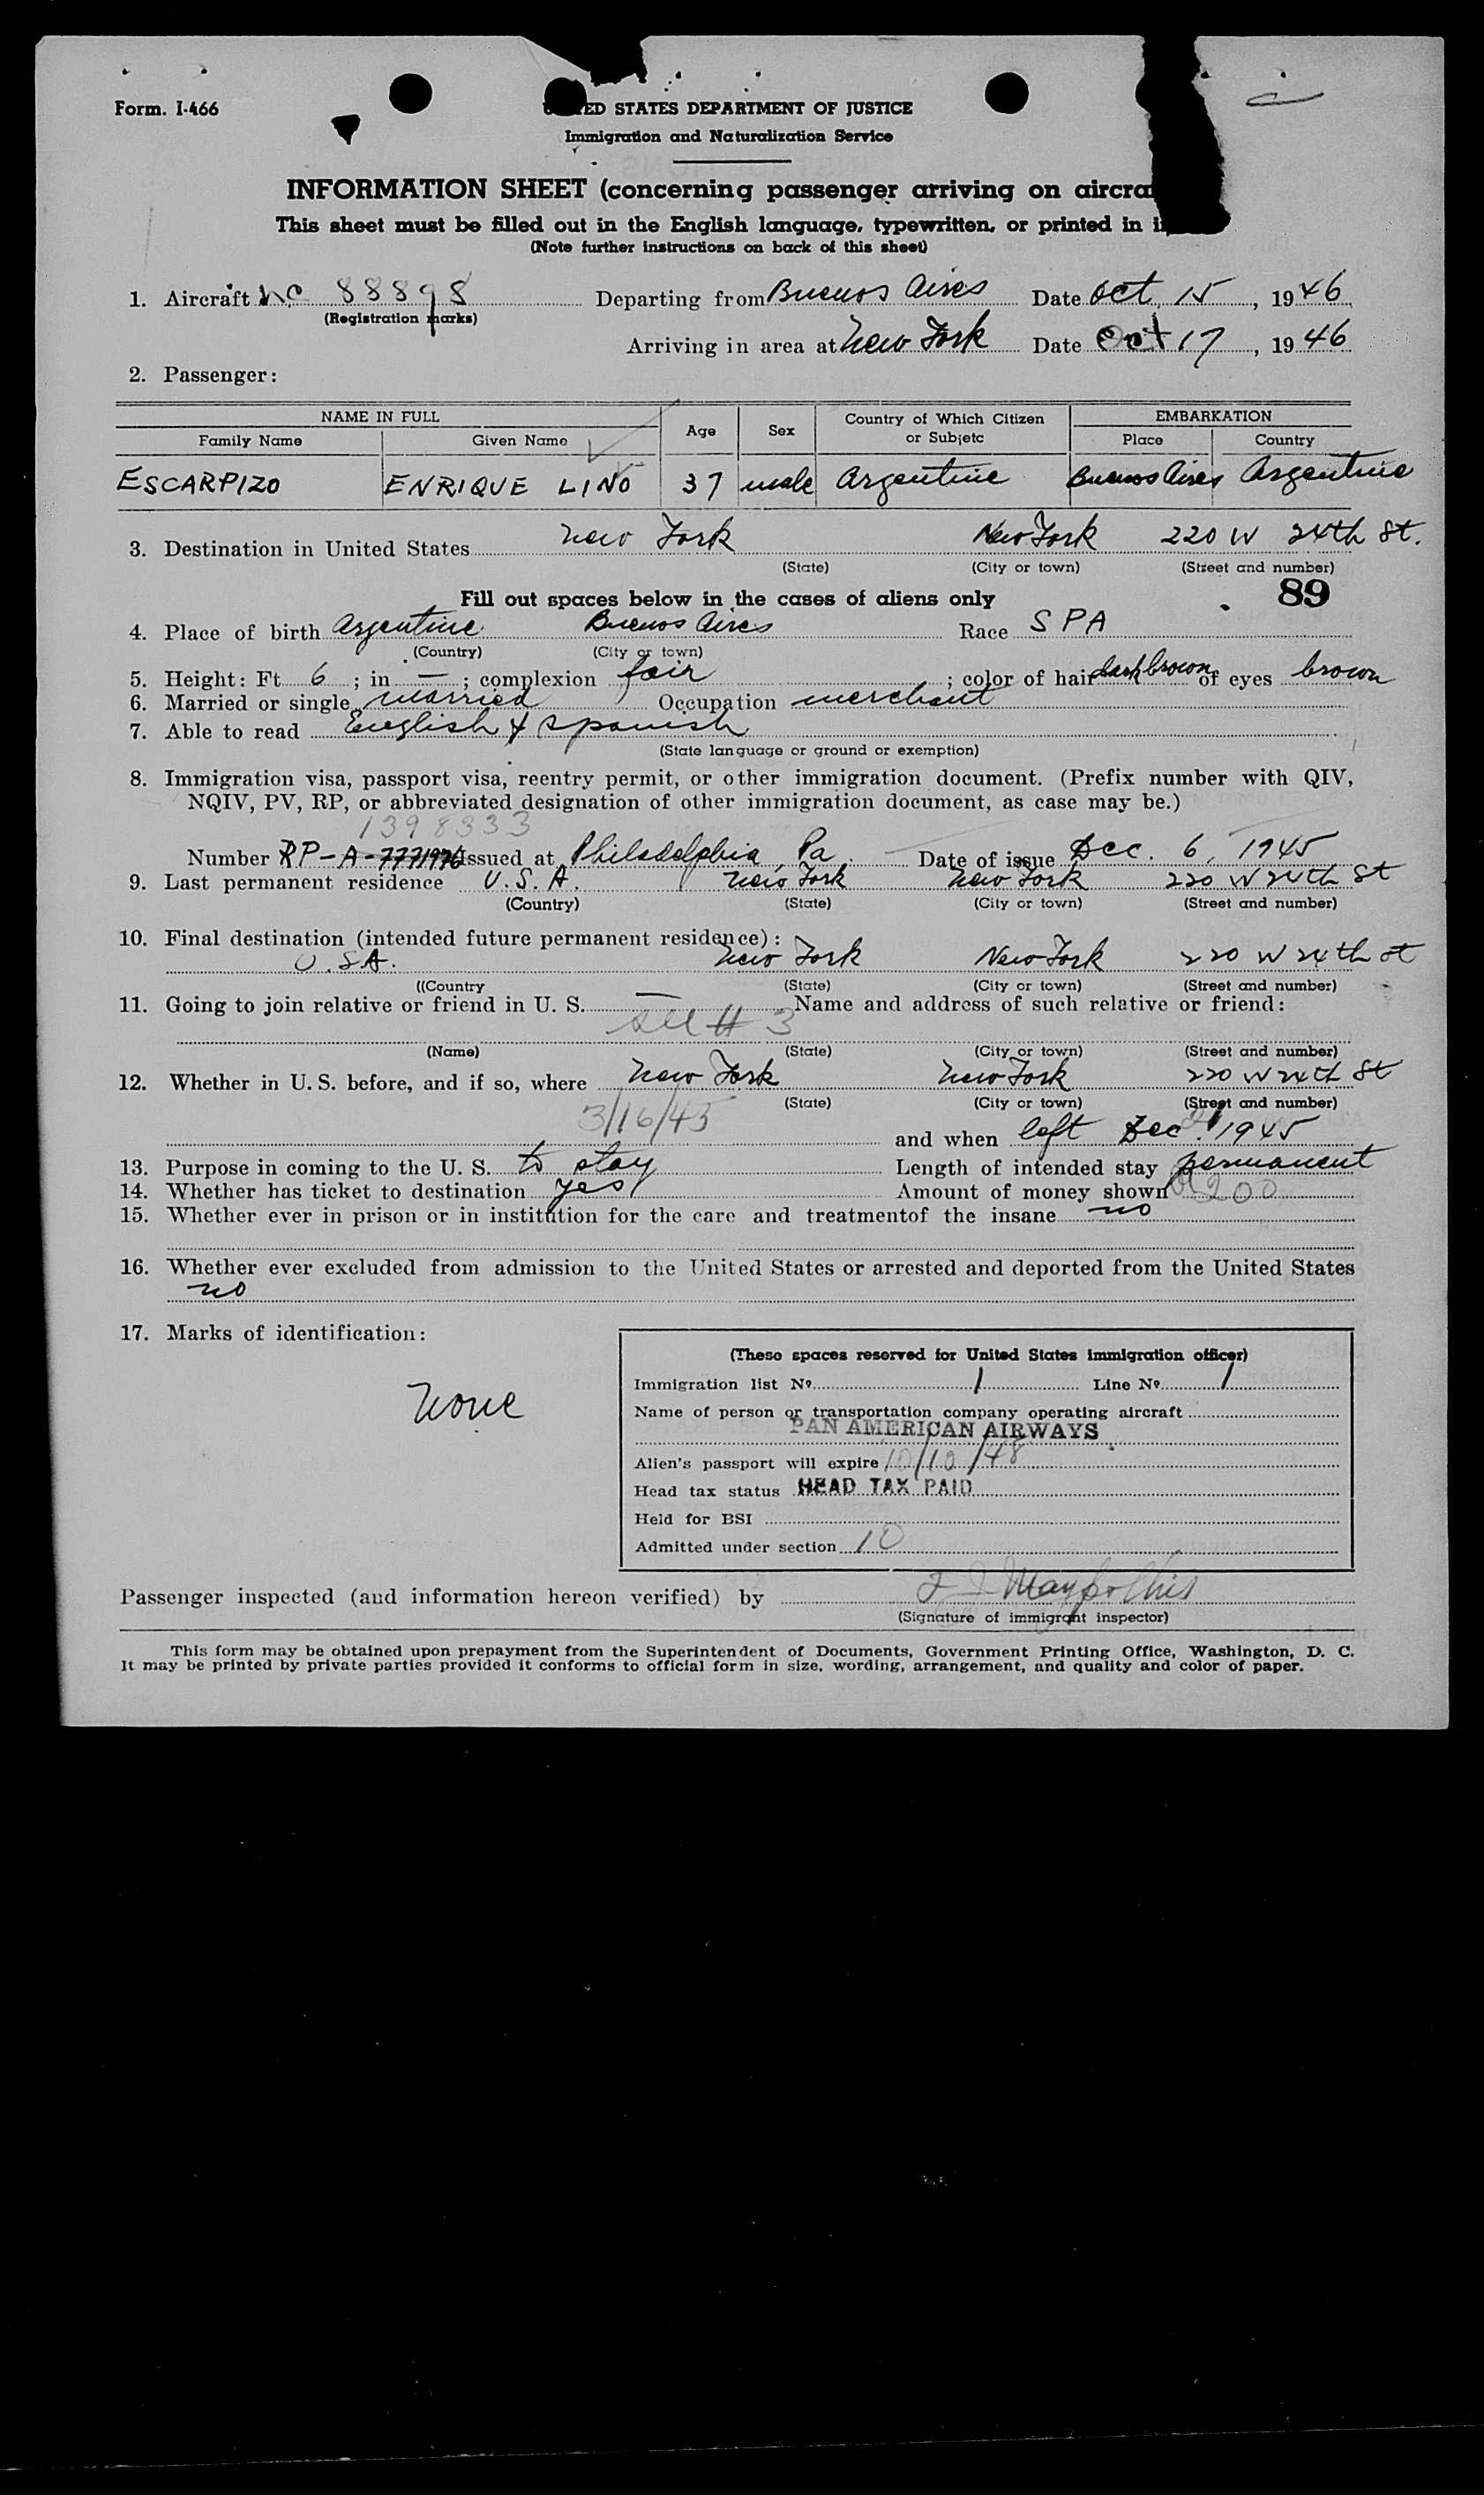 Form. I-466
ED STATES DEPARTMENT OF JUSTICE
Immigration and Naturalization Service
INFORMATION SHEET (concerning passenger arriving on aircra
This sheet must be filled out in the English language, typewritten, or printed in i
(Note further instructions on back of this sheet)
1. Aircraft NC 88898 Departing from Buenos Aires Date Oct 15, 1946
(Registration marks)
Arriving in area at New York Date Oct 17, 1946
2. Passenger:
NAME IN FULL Age Sex Country of Which Citizen or Subjetc EMBARKATION
Family Name Given Name Place Country
ESCARPIZO ENRIQUE LINO 37 male Argentine Buenos Aires Argentine
3. Destination in United States New York New York 220 W 24th St.
(State) (City or town) (Street and number)
Fill out spaces below in the cases of aliens only 89
4. Place of birth Argentine Buenos Aires Race SPA
(Country) (City or town)
5. Height: Ft 6; in —; complexion fair; color of hair dark brown of eyes brown
6. Married or single married Occupation merchant
7. Able to read English & Spanish
(State language or ground or exemption)
8. Immigration visa, passport visa, reentry permit, or other immigration document. (Prefix number with QIV,
NQIV, PV, RP, or abbreviated designation of other immigration document, as case may be.)
1398333
Number RP-A- Issued at Philadelphia, Pa. Date of issue Dec. 6, 1945
9. Last permanent residence U.S.A. New York New York 220 W 24th St
(Country) (State) (City or town) (Street and number)
10. Final destination (intended future permanent residence):
U.S.A. New York New York 220 W 24th St
((Country (State) (City or town) (Street and number)
11. Going to join relative or friend in U. S. — Name and address of such relative or friend:
see # 3
(Name) (State) (City or town) (Street and number)
12. Whether in U. S. before, and if so, where New York New York 220 W 24th St
(State) (City or town) (Street and number)
3/16/45 and when left Dec. 1945
13. Purpose in coming to the U. S. to stay Length of intended stay permanent
14. Whether has ticket to destination yes Amount of money shown 200
15. Whether ever in prison or in institution for the care and treatmentof the insane no
16. Whether ever excluded from admission to the United States or arrested and deported from the United States
no
17. Marks of identification:
None
(These spaces reserved for United States immigration officer)
Immigration list Nº 1 Line Nº 1
Name of person or transportation company operating aircraft
PAN AMERICAN AIRWAYS
Alien's passport will expire 10/10/48
Head tax status HEAD TAX PAID
Held for BSI
Admitted under section 10
Passenger inspected (and information hereon verified) by
(Signature of immigrant inspector)
This form may be obtained upon prepayment from the Superintendent of Documents, Government Printing Office, Washington, D. C.
It may be printed by private parties provided it conforms to official form in size, wording, arrangement, and quality and color of paper.